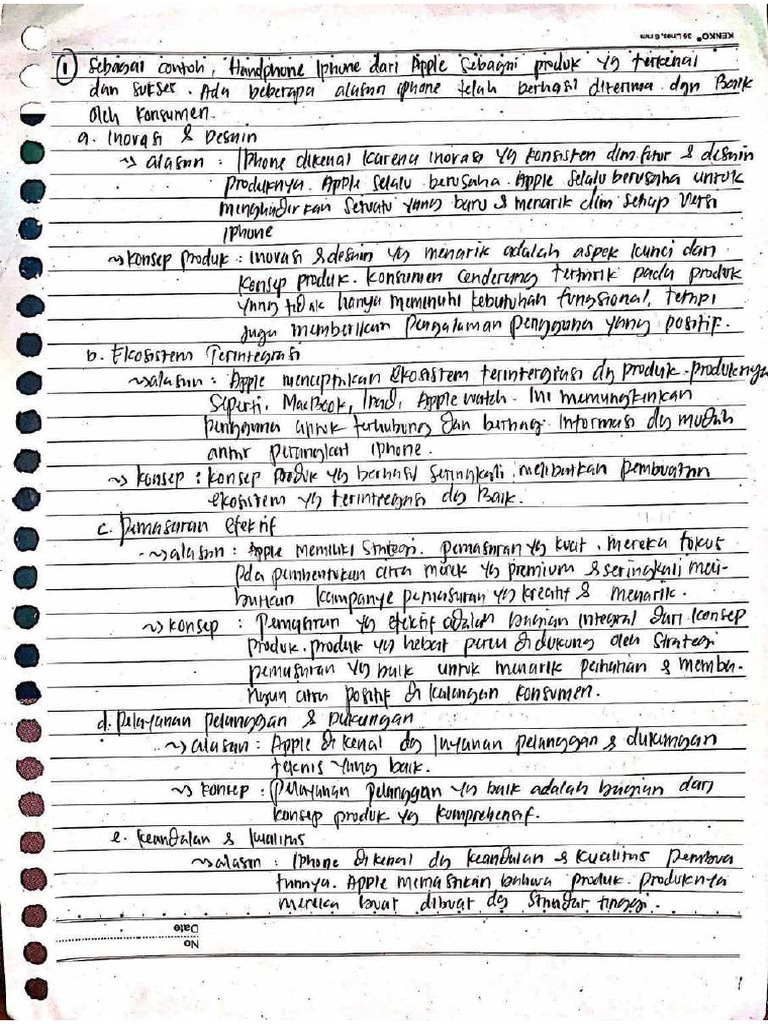 KENKO® 36 Lines, 6 mm
① Sebagai contoh, Handphone Iphone dari Apple sebagai produk yg terkenal
dan sukses. Ada beberapa alasan iphone telah berhasil diterima dgn Baik
oleh konsumen.
a. Inovasi & Desain
~> alasan : Iphone dikenal karena inovasi yg konsisten dlm fitur & desain
produknya. Apple selalu berusaha. Apple selalu berusaha untuk
menghadirkan sesuatu yang baru & menarik dlm setiap versi
iphone
~> konsep produk : inovasi & desain yg menarik adalah aspek kunci dari
konsep produk. konsumen cenderung tertarik pada produk
yang tidak hanya memenuhi kebutuhan fungsional, tetapi
juga memberikan pengalaman pengguna yang positif.
b. Ekosistem Terintegrasi
~> alasan : Apple menciptakan ekosistem terintergrasi dg produk-produknya
seperti, MacBook, Ipad, Apple watch. Ini memungkinkan
pengguna untuk terhubung dan berbagi informasi dg mudah
antar perangkat iphone.
~> konsep : konsep produk yg berhasil seringkali melibatkan pembuatan
ekosistem yg terintregasi dg Baik.
c. pemasaran efektif
~> alasan : Apple memiliki strategi pemasaran yg kuat. mereka fokus
pda pembentukan citra merek yg premium & seringkali mel-
buncurkan kampanye pemasaran yg kreatif & menarik.
~> konsep : pemasaran yg efektif adalah bagian integral dari konsep
produk. produk yg hebat perlu didukung oleh strategi
pemasaran yg baik untuk menarik perhatian & memba-
ngun citra positif di kalangan konsumen.
d. pelayanan pelanggan & Dukungan
~> alasan : Apple di kenal dg layanan pelanggan & dukungan
teknis yang baik.
~> konsep : pelayanan pelanggan yg baik adalah bagian dari
konsep produk yg komprehensif.
e. keandalan & kualitas
~> alasan : Iphone di kenal dg keandalan & kualitas pembua
tannya. Apple memastikan bahwa produk-produknya
mereka buat dibuat dg standar tinggi.
No
Date
1